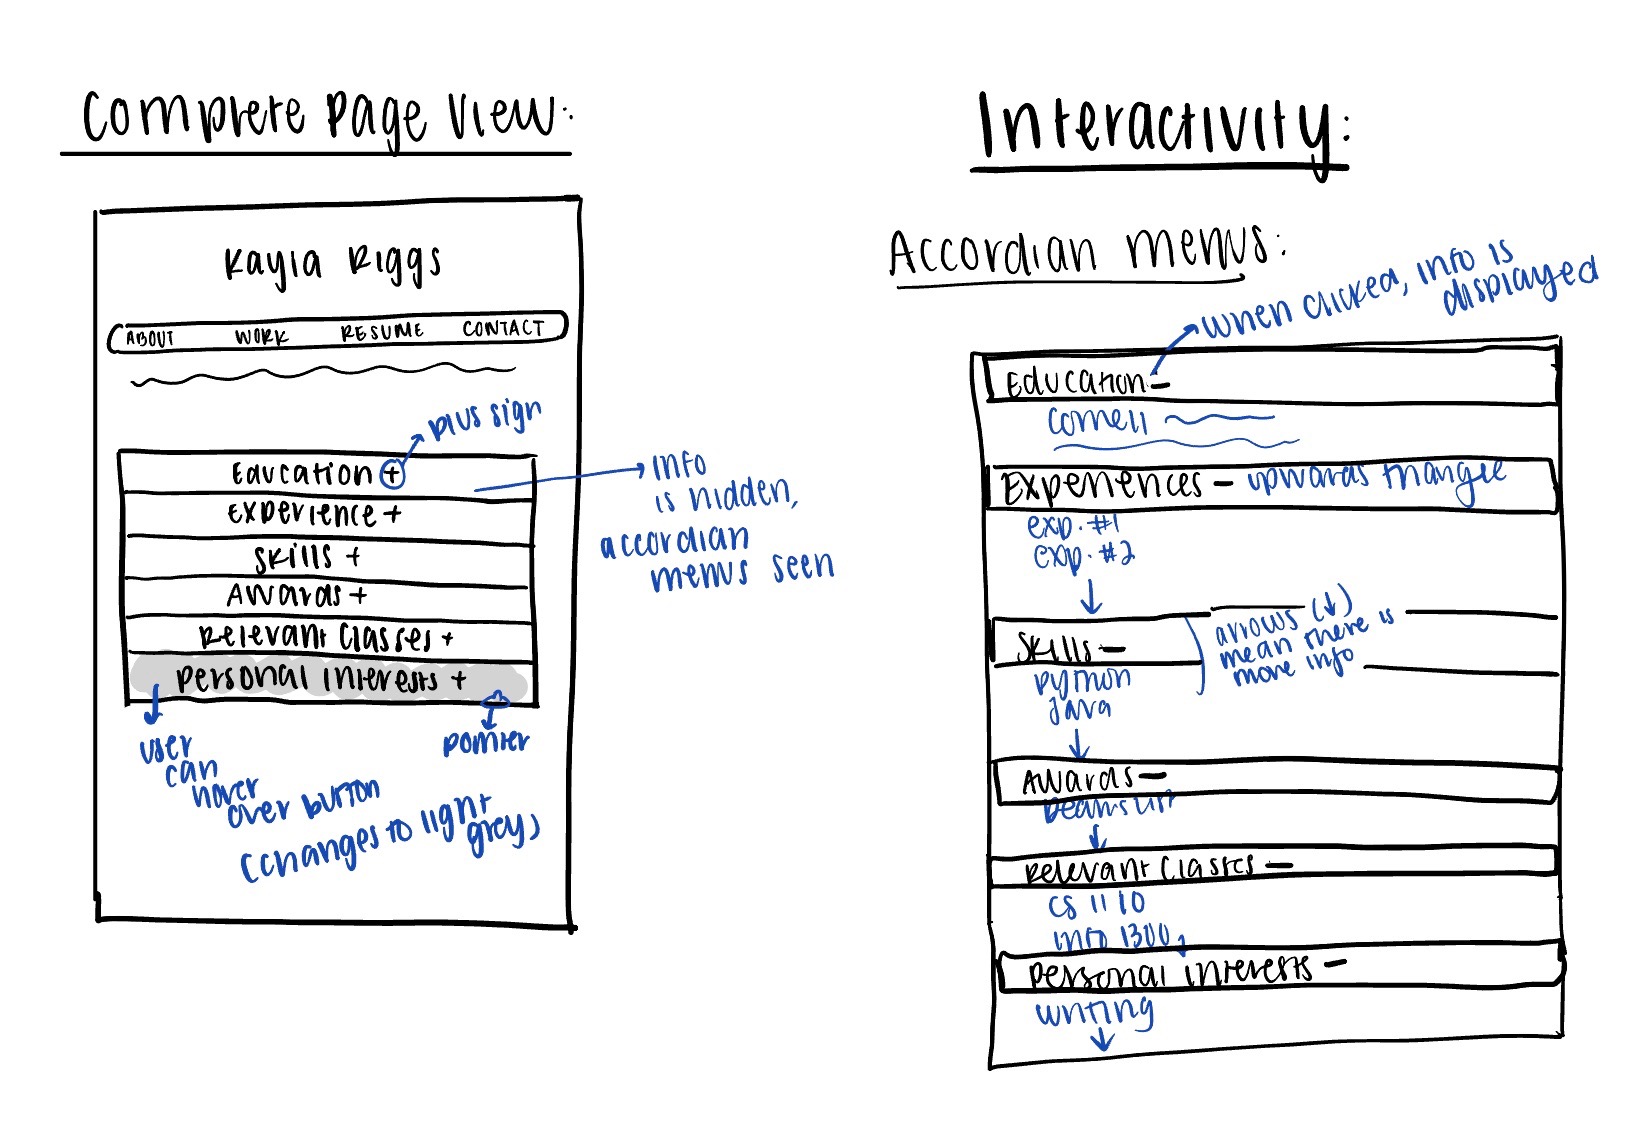 Complete Page View:
Kayla Riggs
ABOUT WORK RESUME CONTACT
plus sign
Education +
Experience +
Skills +
Awards +
Relevant Classes +
Personal Interests +
info
is hidden,
accordian
menus seen
user
can
hover
over button
(changes to light
grey)
pointer
Interactivity:
Accordian menus:
when clicked, info is
displayed
Education –
Cornell
Experiences – upwards triangle
exp. #1
exp. #2
↓
arrows (↓)
mean there is
more info
Skills –
python
Java
↓
Awards –
Deans list
↓
Relevant Classes –
CS 1110
info 1300
↓
Personal Interests –
writing
↓